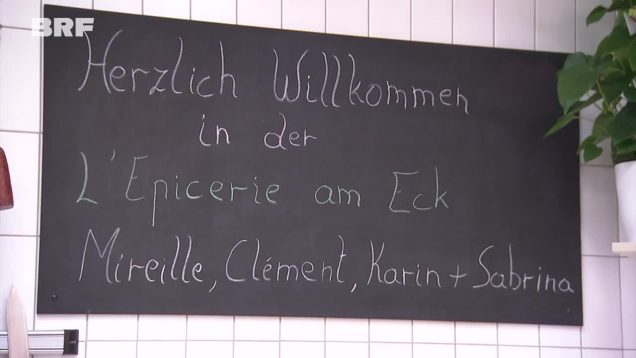 BRF
Herzlich Willkommen
in der
L'Epicerie am Eck
Mireille, Clément, Karin + Sabrina